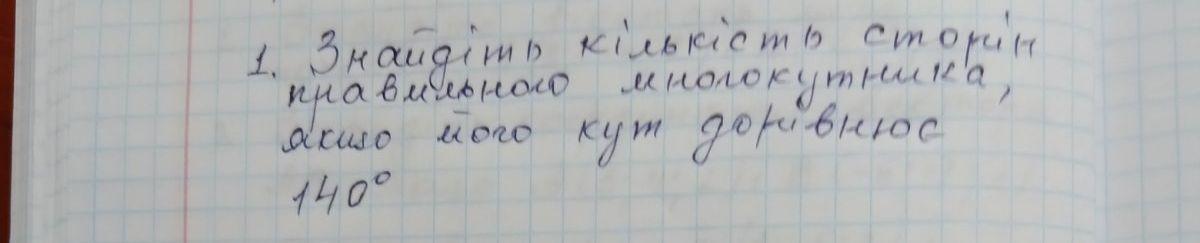 1. Знайдіть кількість сторін
правильного многокутника,
якщо його кут дорівнює
140°